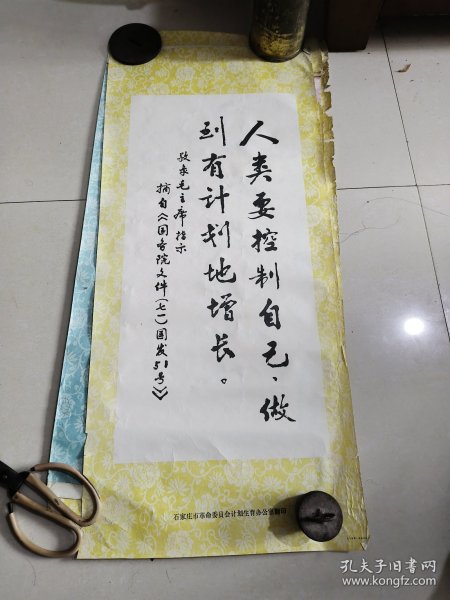 人类要控制自己、做
到有计划地增长。
敬录毛主席指示
摘自《国务院文件(七一)国发51号》
石家庄市革命委员会计划生育办公室翻印
孔夫子旧书网
www.kongfz.com